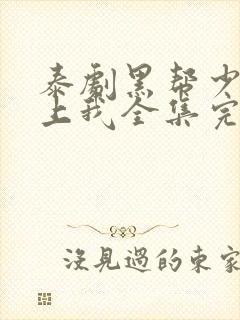 泰劇黑幫少
上我全集完
沒見過的東家